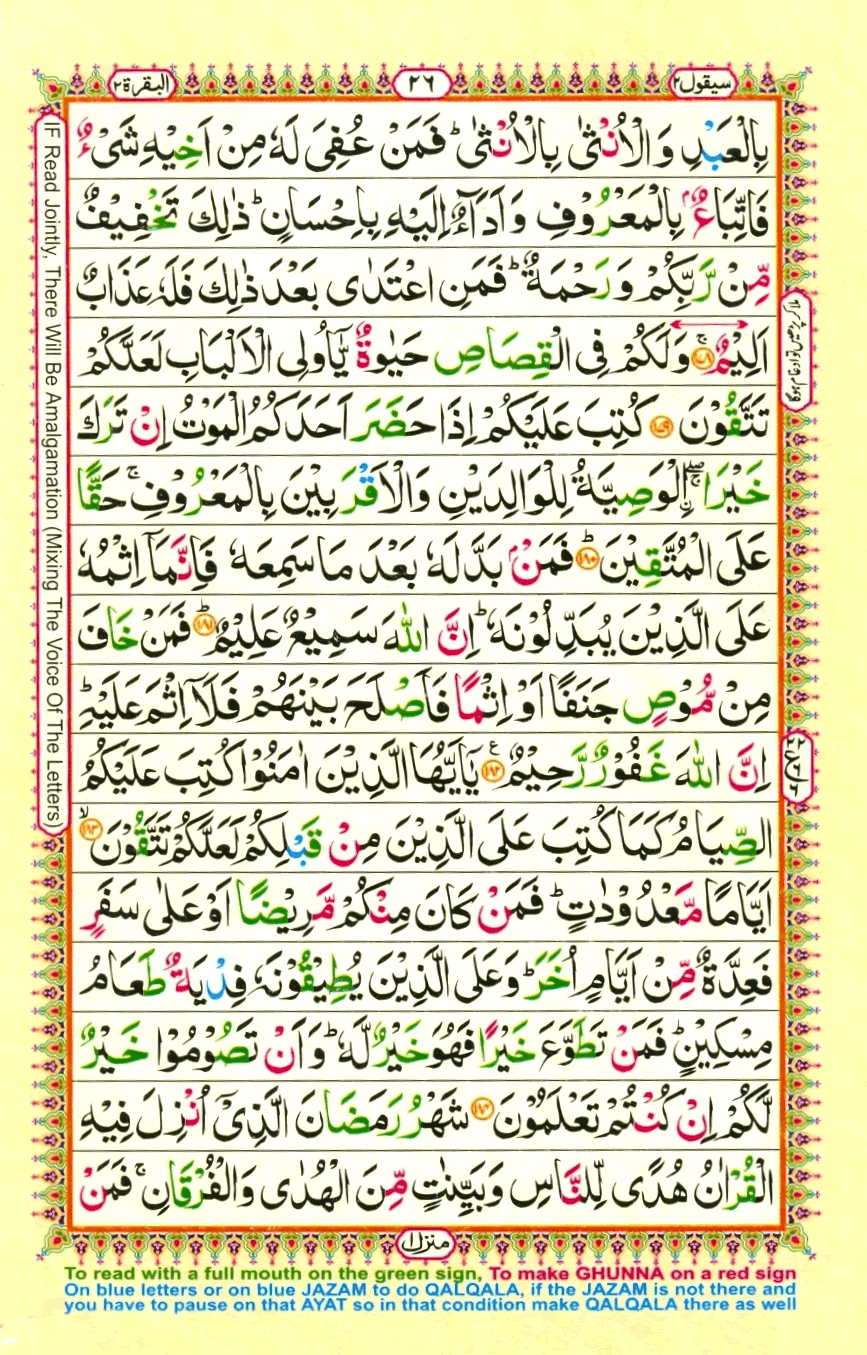 سيقول٢
٢٦
البقرة٢
بِالْعَبْدِ وَالْاُنْثٰى بِالْاُنْثٰى ؕ فَمَنْ عُفِىَ لَهٗ مِنْ اَخِيْهِ شَىْءٌ
فَاتِّبَاعٌۢ بِالْمَعْرُوْفِ وَاَدَآءٌ اِلَيْهِ بِاِحْسَانٍ ؕ ذٰلِكَ تَخْفِيْفٌ
مِّنْ رَّبِّكُمْ وَرَحْمَةٌ ؕ فَمَنِ اعْتَدٰى بَعْدَ ذٰلِكَ فَلَهٗ عَذَابٌ
اَلِيْمٌ ۚ﴿۱۷۸﴾ وَلَكُمْ فِى الْقِصَاصِ حَيٰوةٌ يّٰٓاُولِى الْاَلْبَابِ لَعَلَّكُمْ
تَتَّقُوْنَ ﴿۱۷۹﴾ كُتِبَ عَلَيْكُمْ اِذَا حَضَرَ اَحَدَكُمُ الْمَوْتُ اِنْ تَرَكَ
خَيْرَا ۖۚ اۨلْوَصِيَّةُ لِلْوَالِدَيْنِ وَالْاَقْرَبِيْنَ بِالْمَعْرُوْفِ ۚ حَقًّا
عَلَى الْمُتَّقِيْنَ ؕ﴿۱۸۰﴾ فَمَنْۢ بَدَّلَهٗ بَعْدَ مَا سَمِعَهٗ فَاِنَّمَآ اِثْمُهٗ
عَلَى الَّذِيْنَ يُبَدِّلُوْنَهٗ ؕ اِنَّ اللّٰهَ سَمِيْعٌ عَلِيْمٌ ؕ﴿۱۸۱﴾ فَمَنْ خَافَ
مِنْ مُّوْصٍ جَنَفًا اَوْ اِثْمًا فَاَصْلَحَ بَيْنَهُمْ فَلَآ اِثْمَ عَلَيْهِ ؕ
اِنَّ اللّٰهَ غَفُوْرٌ رَّحِيْمٌ ﴿۱۸۲﴾ ع يٰٓاَيُّهَا الَّذِيْنَ اٰمَنُوْا كُتِبَ عَلَيْكُمُ
الصِّيَامُ كَمَا كُتِبَ عَلَى الَّذِيْنَ مِنْ قَبْلِكُمْ لَعَلَّكُمْ تَتَّقُوْنَ ۙ﴿۱۸۳﴾
اَيَّامًا مَّعْدُوْدٰتٍ ؕ فَمَنْ كَانَ مِنْكُمْ مَّرِيْضًا اَوْ عَلٰى سَفَرٍ
فَعِدَّةٌ مِّنْ اَيَّامٍ اُخَرَ ؕ وَعَلَى الَّذِيْنَ يُطِيْقُوْنَهٗ فِدْيَةٌ طَعَامُ
مِسْكِيْنٍ ؕ فَمَنْ تَطَوَّعَ خَيْرًا فَهُوَ خَيْرٌ لَّهٗ ؕ وَاَنْ تَصُوْمُوْا خَيْرٌ
لَّكُمْ اِنْ كُنْتُمْ تَعْلَمُوْنَ ﴿۱۸۴﴾ شَهْرُ رَمَضَانَ الَّذِىْٓ اُنْزِلَ فِيْهِ
الْقُرْاٰنُ هُدًى لِّلنَّاسِ وَبَيِّنٰتٍ مِّنَ الْهُدٰى وَالْفُرْقَانِ ۚ فَمَنْ
منزل١
IF Read Jointly, There Will Be Amalgamation (Mixing The Voice Of The Letters)
To read with a full mouth on the green sign, To make GHUNNA on a red sign
On blue letters or on blue JAZAM to do QALQALA, if the JAZAM is not there and
you have to pause on that AYAT so in that condition make QALQALA there as well